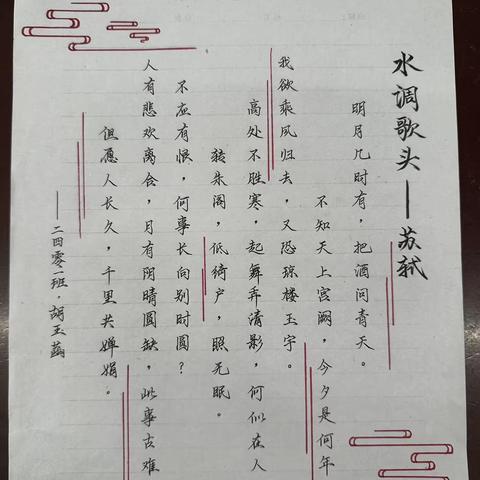 水调歌头——苏轼
明月几时有，把酒问青天。
不知天上宫阙，今夕是何年
我欲乘风归去，又恐琼楼玉宇。
高处不胜寒，起舞弄清影，何似在人
转朱阁，低绮户，照无眠。
不应有恨，何事长向别时圆？
人有悲欢离合，月有阴晴圆缺，此事古难
但愿人长久，千里共婵娟。
——二四零一班，胡玉菡